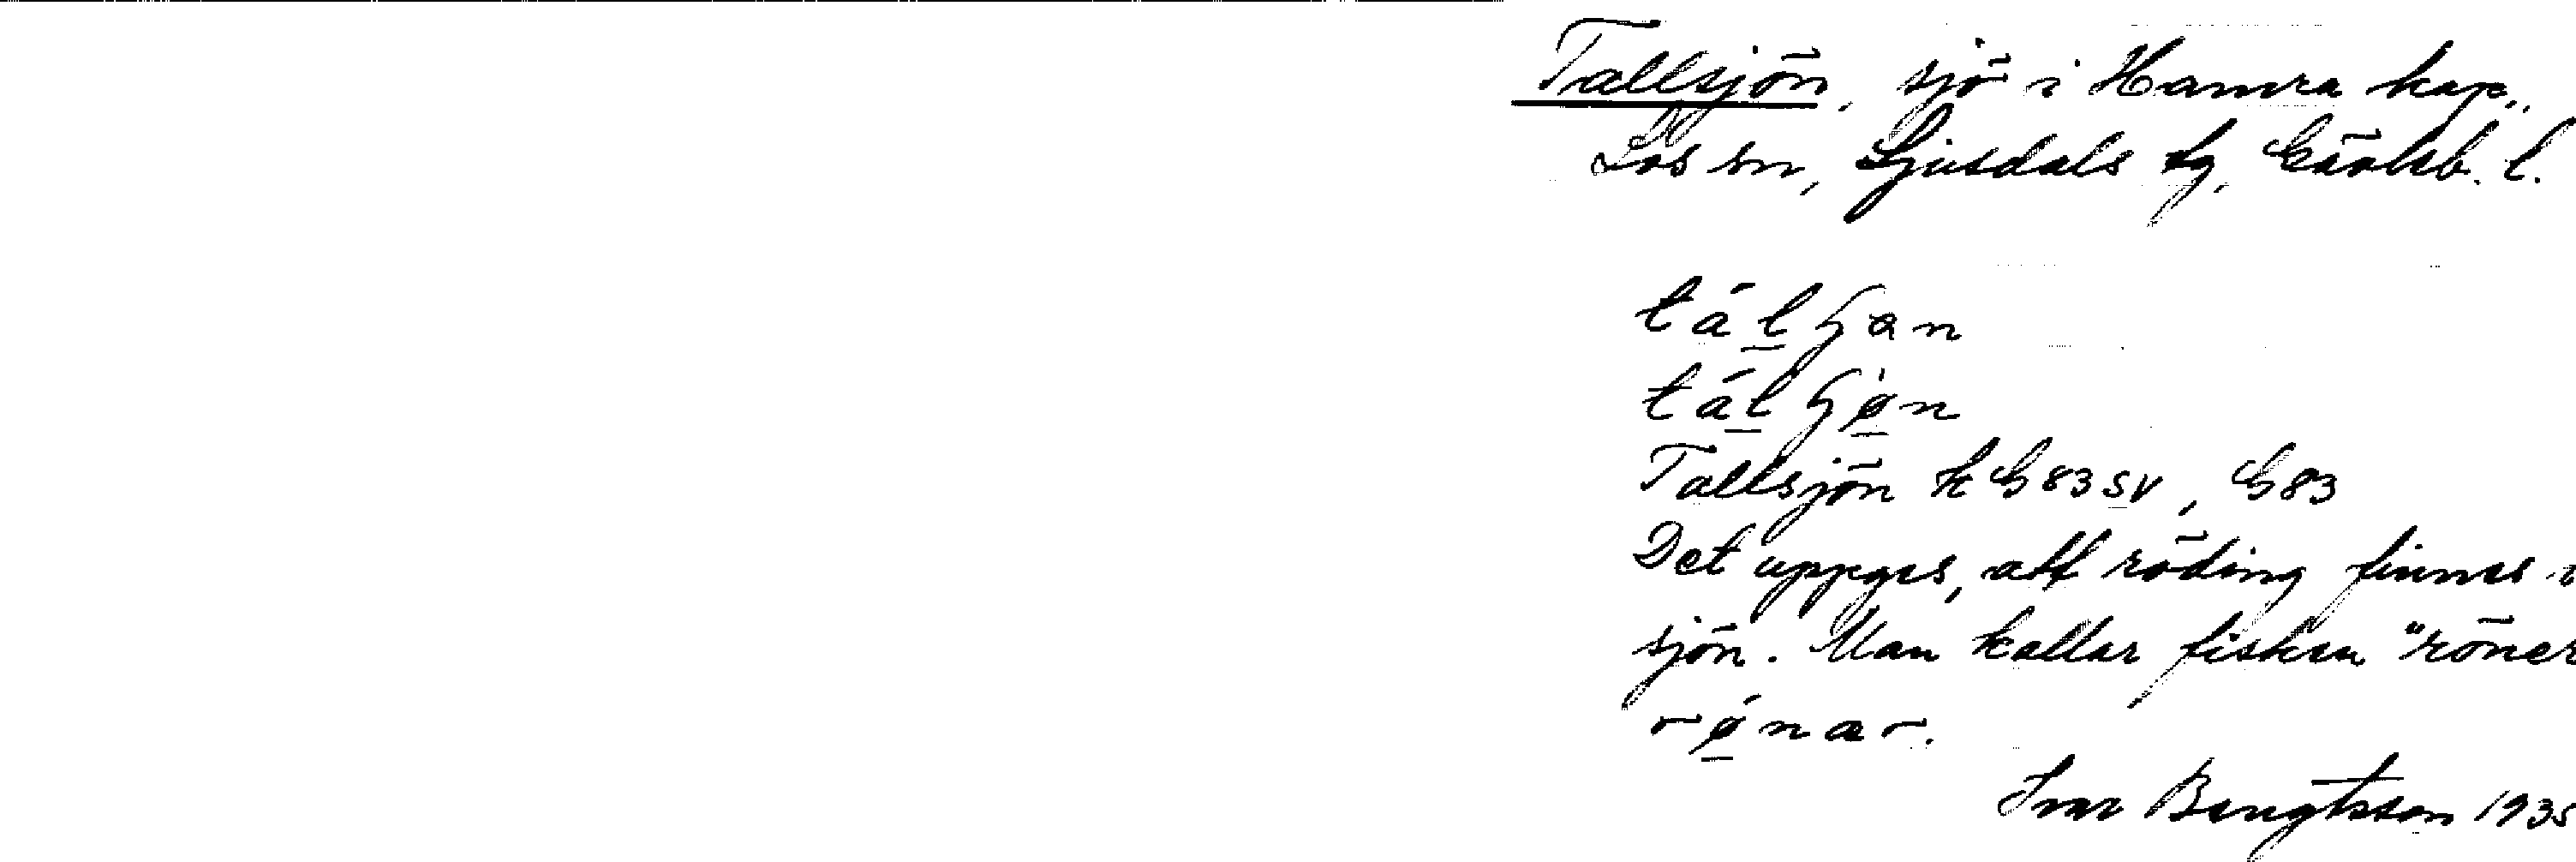 Tallsjön, sjö i Hamra kap.,
Los sn, Ljusdals tg, Gävleb. l.
Tallsjön k G 83 SV, G 83
Det uppges, att röding finnes i
sjön. Man kallar fisken "röner
Ivar Bengtsson 1935